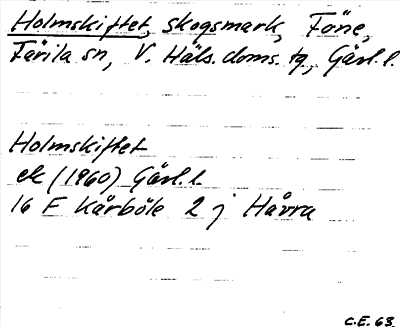 Holmskiftet, skogsmark, Föne,
Färila sn, V. Häls. doms. tg, Gävl. l.
Holmskiftet
ek (1960) Gävl. l.
16 F Kårböle 2 j Håvra
C.E. 63